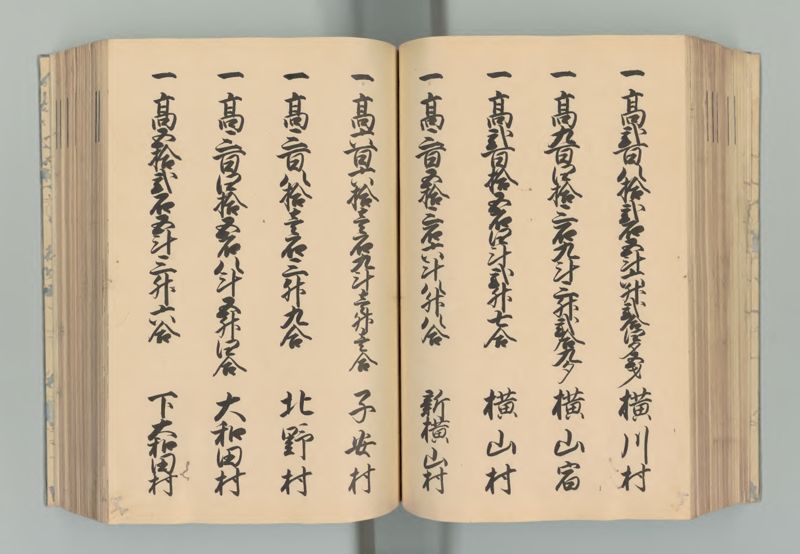 一高弐百八拾弐石五斗一升弐合四夕 横川村
一高九百四拾三石九斗三升弐合九夕 横山宿
一高弐百拾五石四斗弐升七合 横山村
一高三百五拾三石六斗八升八合 新横山村
一高六百六拾壱石九斗壱升壱合 子安村
一高三百八拾壱石三升九合 北野村
一高三百四拾五石八斗五升四合 大和田村
一高五拾弐石五斗三升六合 下大和田村